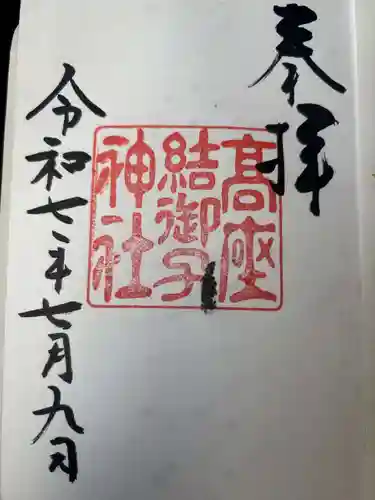 奉拝
髙座
結御子
神社
令和七年七月九日